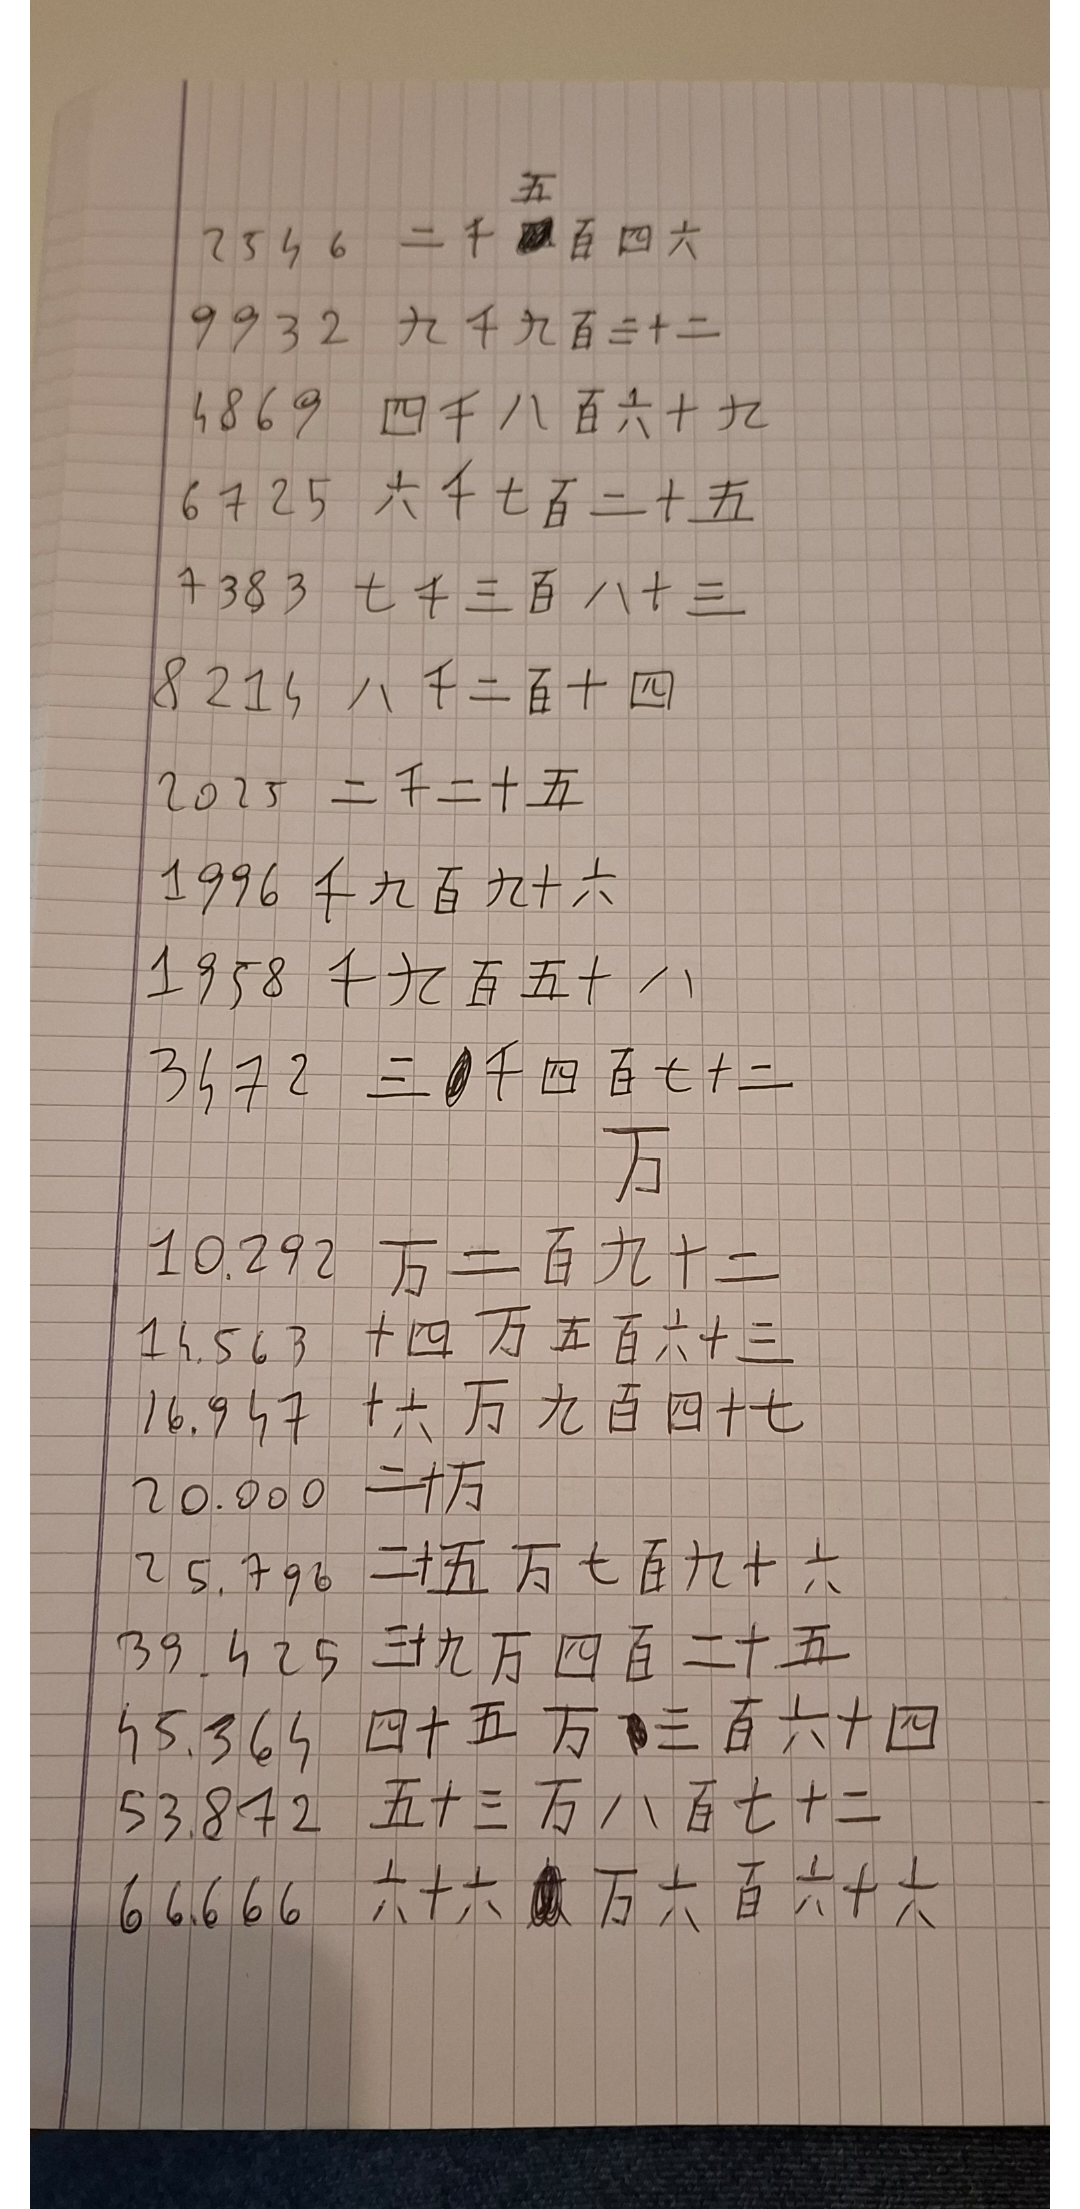 五
2546 二千百四六
9932 九千九百三十二
4869 四千八百六十九
6725 六千七百二十五
7383 七千三百八十三
8214 八千二百十四
2025 二千二十五
1996 千九百九十六
1958 千九百五十八
3472 三千四百七十二
万
10.292 万二百九十二
14.563 十四万五百六十三
16.947 十六万九百四十七
20.000 二十万
25.796 二十五万七百九十六
39.425 三十九万四百二十五
45.364 四十五万三百六十四
53.872 五十三万八百七十二
66.666 六十六万六百六十六